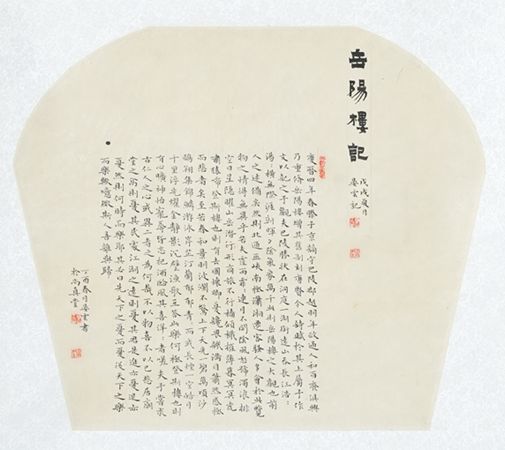 岳陽樓記
戊戌夏月
晏雲記
慶曆四年春滕子京謫守巴陵郡越明年政通人和百廢俱興
乃重修岳陽樓增其舊制刻唐賢今人詩賦於其上屬予作
文以記之予觀夫巴陵勝狀在洞庭一湖銜遠山吞長江浩〻
湯〻橫無際涯朝暉夕陰氣象萬千此則岳陽樓之大觀也前
人之述備矣然則北通巫峽南極瀟湘遷客騷人多會於此覽
物之情得無異乎若夫霪雨霏〻連月不開陰風怒號濁浪排
空日星隱耀山岳潛形商旅不行檣傾楫摧薄暮冥冥虎
嘯猿啼登斯樓也則有去國懷鄉憂讒畏譏滿目蕭然感極
而悲者矣至若春和景明波瀾不驚上下天光一碧萬頃沙
鷗翔集錦鱗游泳岸芷汀蘭郁郁青青而或長煙一空皓月
千里浮光耀金靜影沉璧漁歌互答此樂何極登斯樓也則
有心曠神怡寵辱皆忘把酒臨風其喜洋〻者矣嗟夫予嘗求
古仁人之心或異二者之為何哉不以物喜不以己悲居廟
堂之高則憂其民處江湖之遠則憂其君是進亦憂退亦
憂然則何時而樂耶其必曰先天下之憂而憂後天下之樂
而樂歟噫微斯人吾誰與歸
丁酉春月晏雲書
於尚真堂